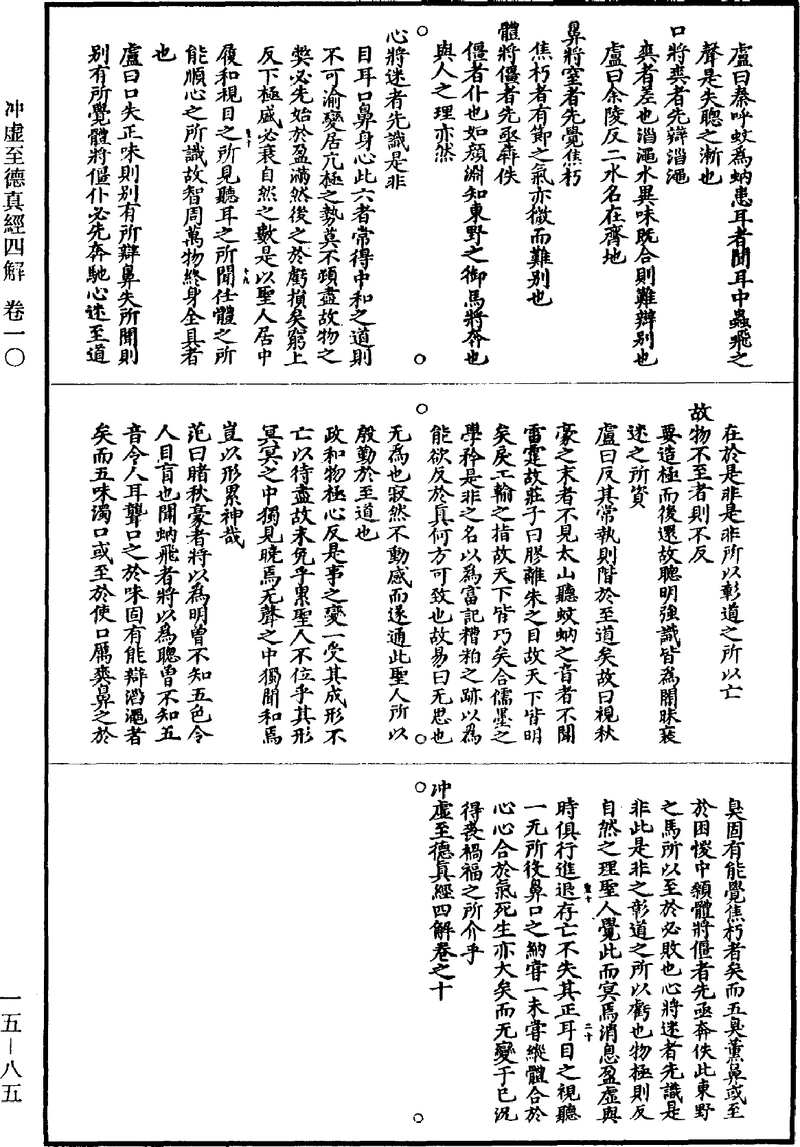 盧曰秦呼蚊為蚋患耳者聞耳中蟲飛之
聲是失聰之漸也
口將爽者先辯淄澠
爽者差也淄澠水異味既合則難辯別也
盧曰余陵反二水名在齊地
鼻將窒者先覺焦朽
焦朽者有節之氣亦微而難別也
體將僵者先亟犇佚
僵者仆也如顏淵知東野之御馬將奔也
與人之理亦然
心將迷者先識是非
目耳口鼻身心此六者常得中和之道則
不可渝變居亢極之勢莫不頓盡故物之
獘必先始於盈滿然後之於虧損矣窮上
反下極盛必衰自然之數是以聖人居中
履和視目之所見聽耳之所聞任體之所
能順心之所識故智周萬物終身全具者
也
盧曰口失正味則別有所辯鼻失所聞則
別有所覺體將僵仆必先奔馳心迷至道
在於是非是非所以彰道之所以亡
故物不至者則不反
要造極而後還故聰明強識皆為闇昧衰
迷之所資
盧曰反其常執則階於至道矣故曰視秋
豪之末者不見太山聽蚊蚋之音者不聞
雷霆故莊子曰膠離朱之目故天下皆明
矣戾工輸之指故天下皆巧矣合儒墨之
學矜是非之名以為富記糟粕之跡以為
能欲反於真何方可致也故易曰无思也
无為也寂然不動感而遂通此聖人所以
殷勤於至道也
政和物極必反是事之變一受其成形不
亡以待盡故未免乎累聖人不位乎其形
冥冥之中獨見曉焉无聲之中獨聞和焉
豈以形累神哉
范曰睹秋豪者將以為明曾不知五色令
人目盲也聞蚋飛者將以為聰曾不知五
音令人耳聾口之於味固有能辯淄澠者
矣而五味濁口或至於使口厲爽鼻之於
臭固有能覺焦朽者矣而五臭薰鼻或至
於困惾中顙體將僵者先亟奔佚此東野
之馬所以至於必敗也心將迷者先識是
非此是非之彰道之所以虧也物極則反
自然之理聖人覺此而冥焉消息盈虛與
時俱行進退存亡不失其正耳目之視聽
一无所役鼻口之納嘗一未嘗縱體合於
心心合於氣死生亦大矣而无變于已況
得喪禍福之所介乎
冲虛至德真經四解卷之十
冲虛至德真經四解 卷一〇
一五—八五